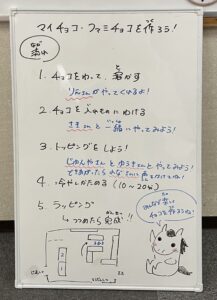 マイチョコ・ファミチョコを作ろう!
ながれ
流れ
1. チョコをわって、溶かす
りんさんがやってくれるよ!
2. チョコを入れものにわける
さきさんと一緒にやってみよう!
3. トッピングをしよう!
じゅんやさんとゆうきさんとやってみよう!
できあがったらみなさんに声をかけてね!
4. 冷やしかためる (10～20分)
5. ラッピング
つめたら完成!!
みんなで楽しい
チョコを作ろうね!